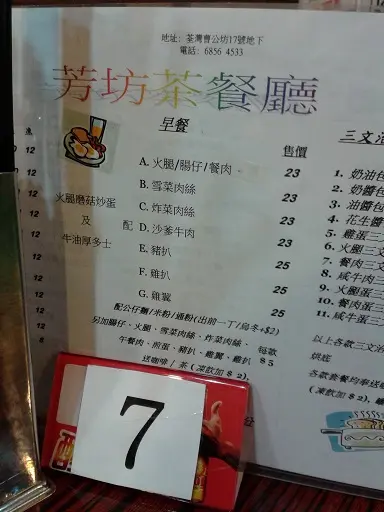 地址: 荃灣曹公坊17號地下
電話: 6856 4533
芳坊茶餐廳
早餐
售價
火腿磨菇炒蛋
及
牛油厚多士
配
A. 火腿/腸仔/餐肉 23
B. 雪菜肉絲 23
C. 炸菜肉絲 23
D. 沙爹牛肉 23
E. 豬扒 25
F. 雞扒 25
G. 雞翼 25
配公仔麵/米粉/通粉(出前一丁/烏冬+$2)
另加腸仔、火腿、雪菜肉絲、炸菜肉絲、 每款
午餐肉、煎蛋、豬扒、雞翼、雞扒 $5
送咖啡/茶(凍飲加$2)
12
12
12
12
12
12
12
12
12
12
8
三文
1. 奶油
2. 奶醬
3. 油醬
4. 花生醬
5. 雞蛋三
6. 火腿三文
7. 餐肉三文
8. 咸牛肉三
9. 火腿蛋
10. 餐肉蛋
11. 咸牛蛋三
以上各款三文
烘底
各款套餐均奉送
(凍飲加$2,
7